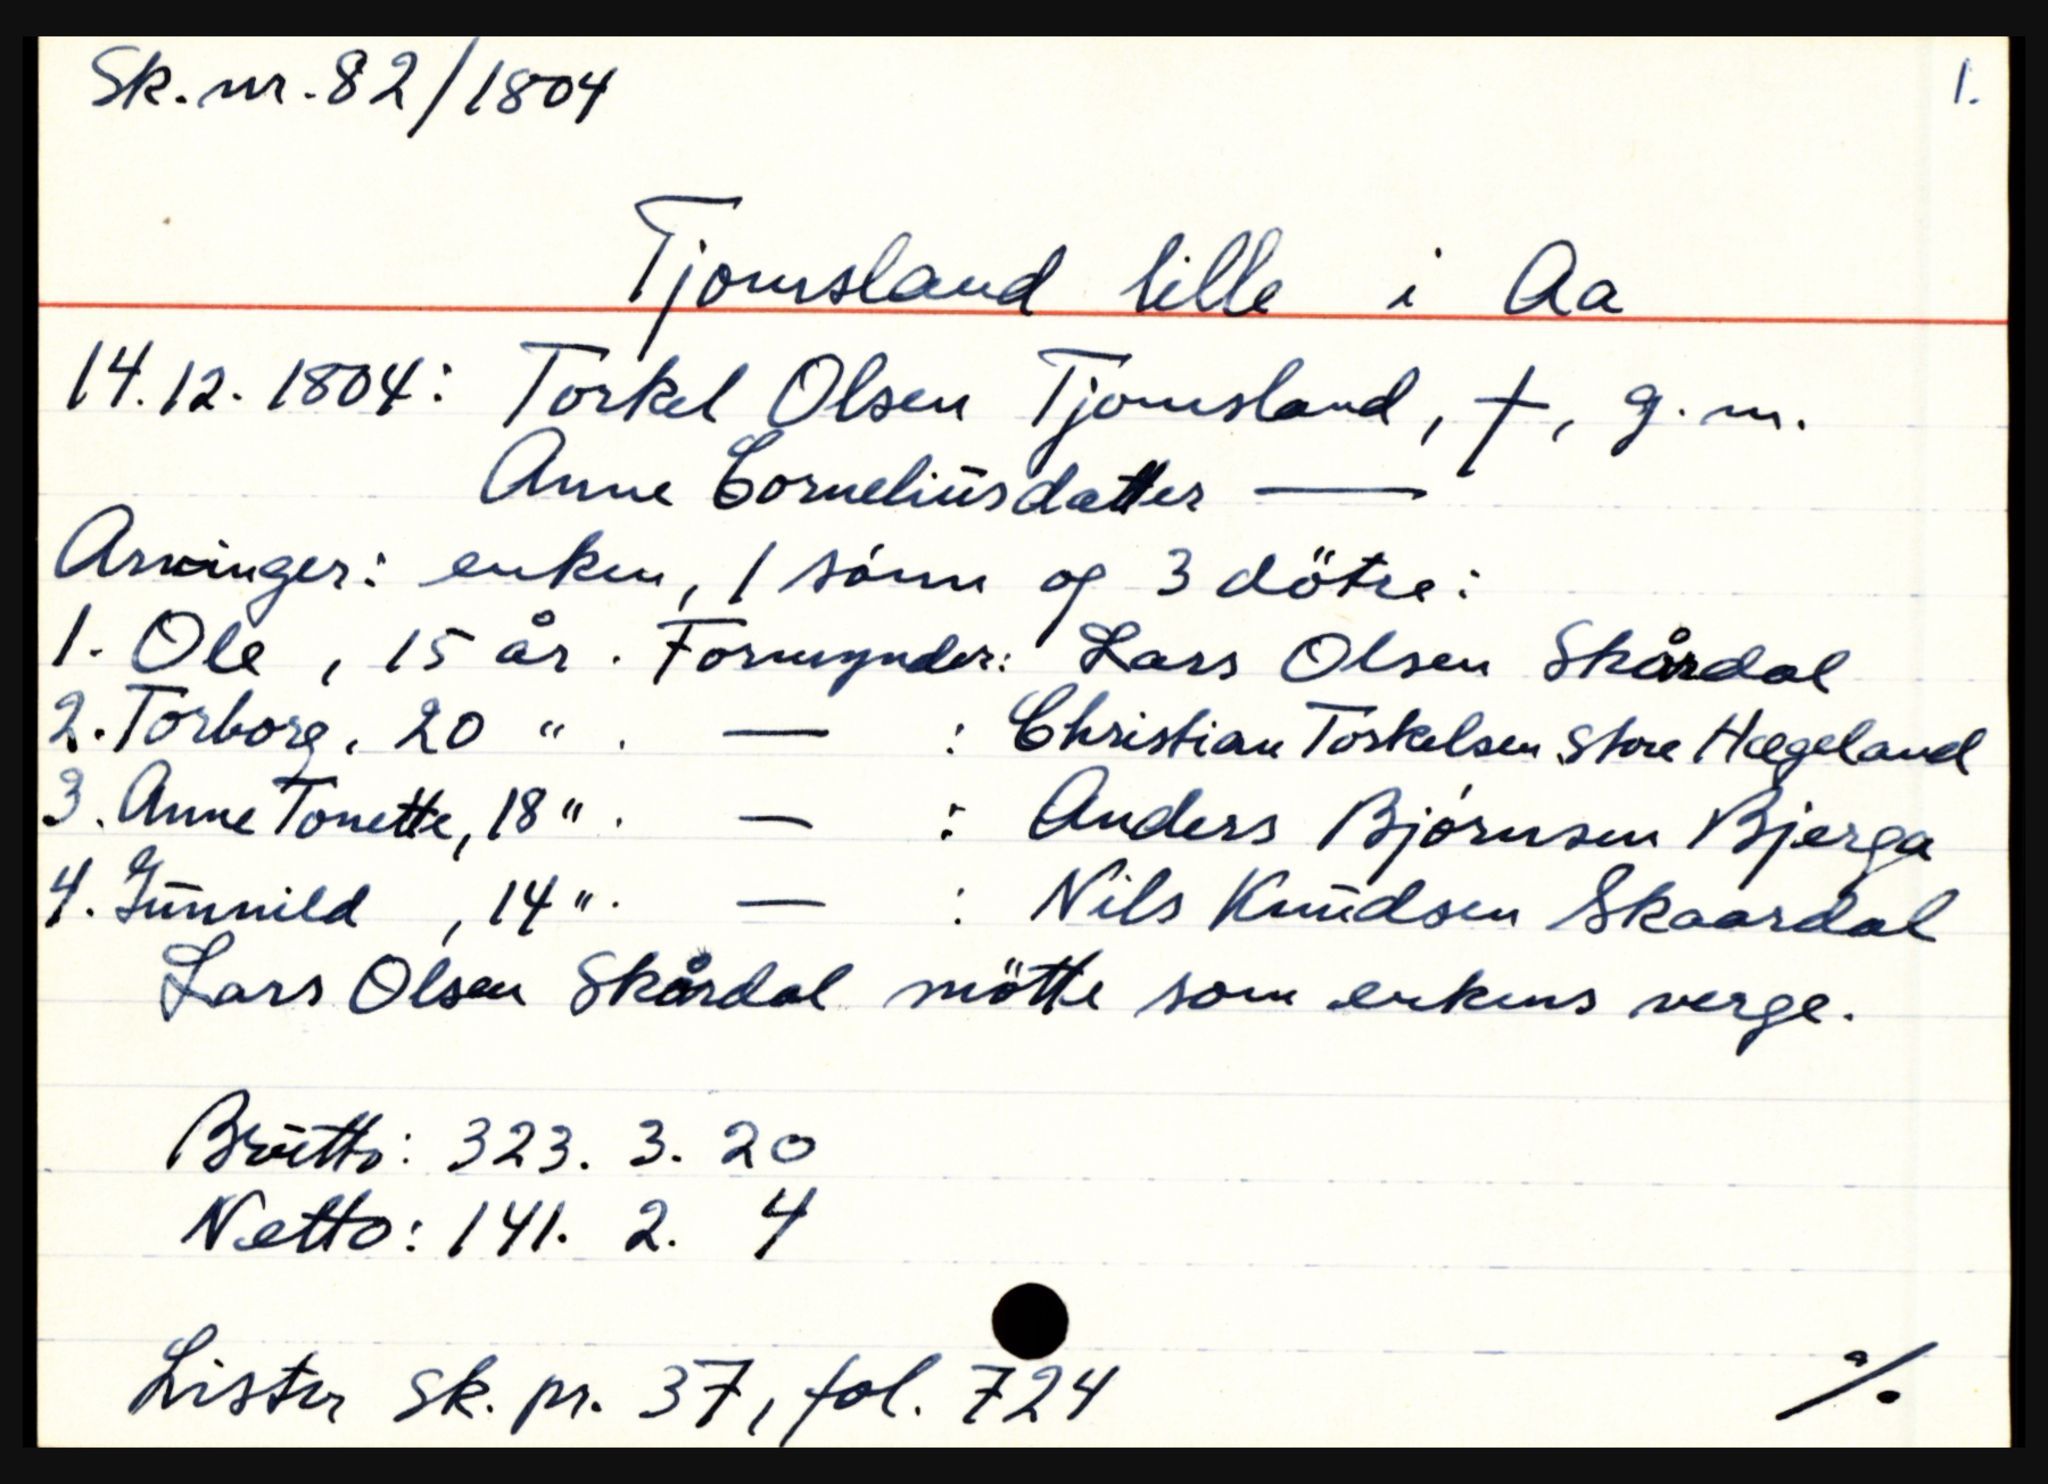 Sk. nr. 82/1804
1.
Tjomsland lille i Aa
14.12. 1804: Torkel Olsen Tjomsland, †, g. m.
Anne Corneliusdatter —
Arvinger: enken, 1 sónn og 3 dötre:
1. Ole, 15 år. Formynder: Lars Olsen Skårdal
2. Torborg, 20 " . — : Christian Torkelsen Store Hægeland
3. Anne Tonette, 18 " . — : Anders Bjórnsen Bjerga
4. Gunnild, 14 " . — : Nils Knudsen Skaardal
Lars Olsen Skårdal mötte som enkens verge.
Brutto: 323. 3. 20
Netto: 141. 2. 4
Lister Sk. pr. 37, fol. 724
./.